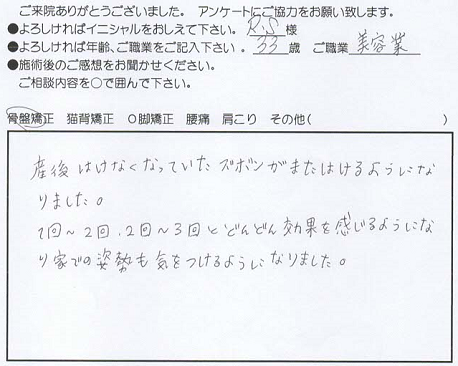 ご来院ありがとうございました。 アンケートにご協力をお願い致します。
●よろしければイニシャルをおしえて下さい。 R.S 様
●よろしければ年齢、ご職業をご記入下さい 。 33 歳 ご職業 美容業
●施術後のご感想をお聞かせください。
ご相談内容を○で囲んで下さい。
骨盤矯正 猫背矯正 O脚矯正 腰痛 肩こり その他( )
産後はけなくなっていたズボンがまたはけるようにな
りました。
1回～2回、2回～3回とどんどん効果を感じるようにな
り家での姿勢も気をつけるようになりました。